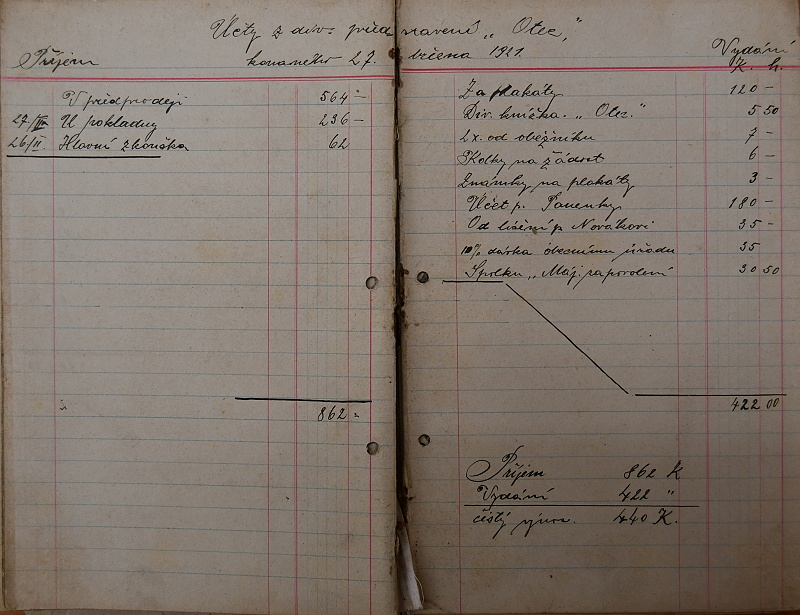 Účty z div. představení „Otec"
Příjem
konaného 27. března 1921.
Vydání
K. h.
V předprodeji 564 -
27/III U pokladny 236 -
26/II. Hlavní zkouška 62
862 -
Za plakáty 120 -
Div. knížka „Otec." 5 50
2x. od oběžníku 7 -
Kolky na žádost 6 -
Známky na plakáty 3 -
Účet p. Panenky 180 -
Od líčení p. Novákovi 35 -
10% dávka obecnímu úřadu 35
Spolku „Máj" za povolení 30 50
422 00
Příjem 862 K
Vydání 422 "
čistý výnos. 440 K.